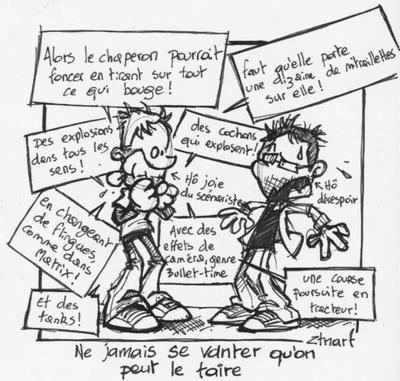 Alors le chaperon pourrait
foncer en tirant sur tout
ce qui bouge!
faut qu'elle porte
une dizaine de mitraillettes
sur elle!
Des explosions
dans tous les
sens!
des cochons
qui explosent!
Hô joie
du scénariste
Hô
désespoir
en changeant
de flingues,
comme dans
Matrix!
Avec des
effets de
caméra, genre
Bullet-time
une course
poursuite en
tracteur!
Et des
tanks!
Ztnarf
Ne jamais se vanter qu'on
peut le faire